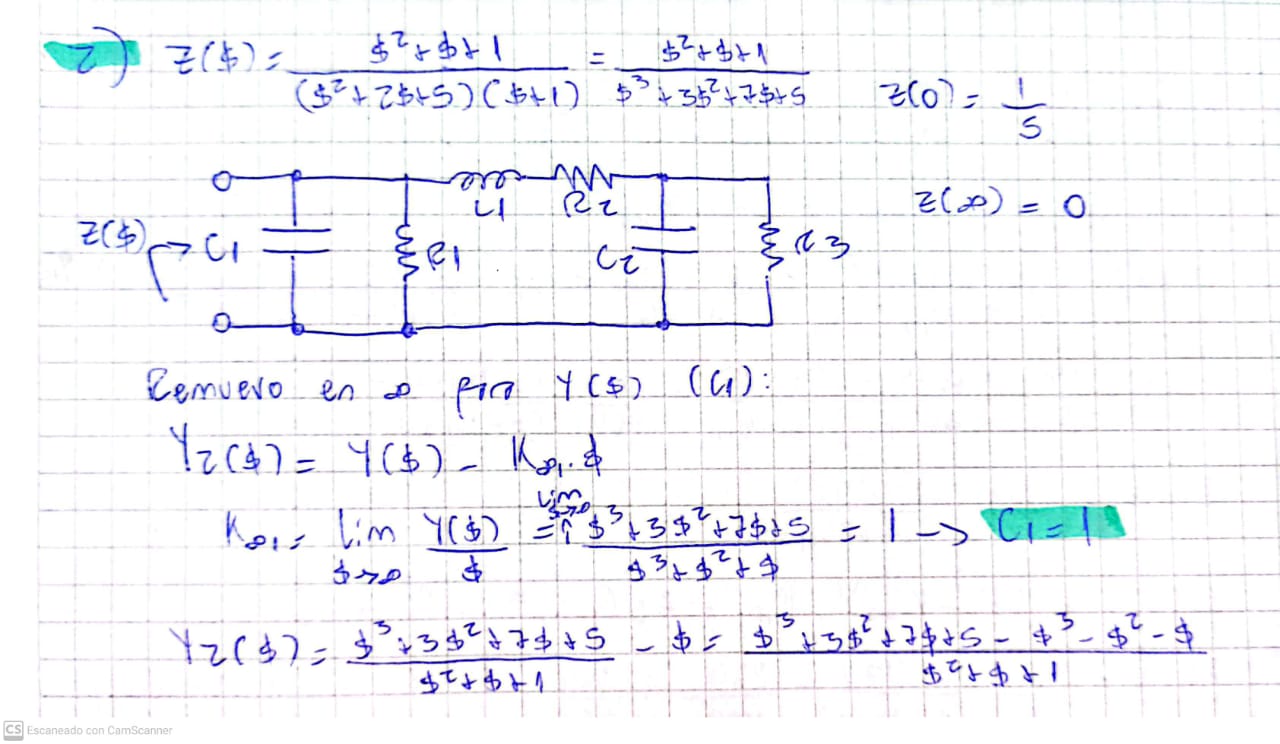 2) Z($) = $²+$+1 / ($²+2$+5)($+1) = $²+$+1 / $³+3$²+7$+5 Z(0) = 1/5
Z(∞) = 0
L1 R2
Z($) C1 R1 C2 R3
Remuevo en ∞ para Y($) (C1):
Y2($) = Y($) - K∞1.$
K∞1 = lim $→∞ Y($)/$ = lim $→∞ $³+3$²+7$+5 / $³+$²+$ = 1 → C1=1
Y2($) = $³+3$²+7$+5 / $²+$+1 - $ = $³+3$²+7$+5-$³-$²-$ / $²+$+1
CS Escaneado con CamScanner